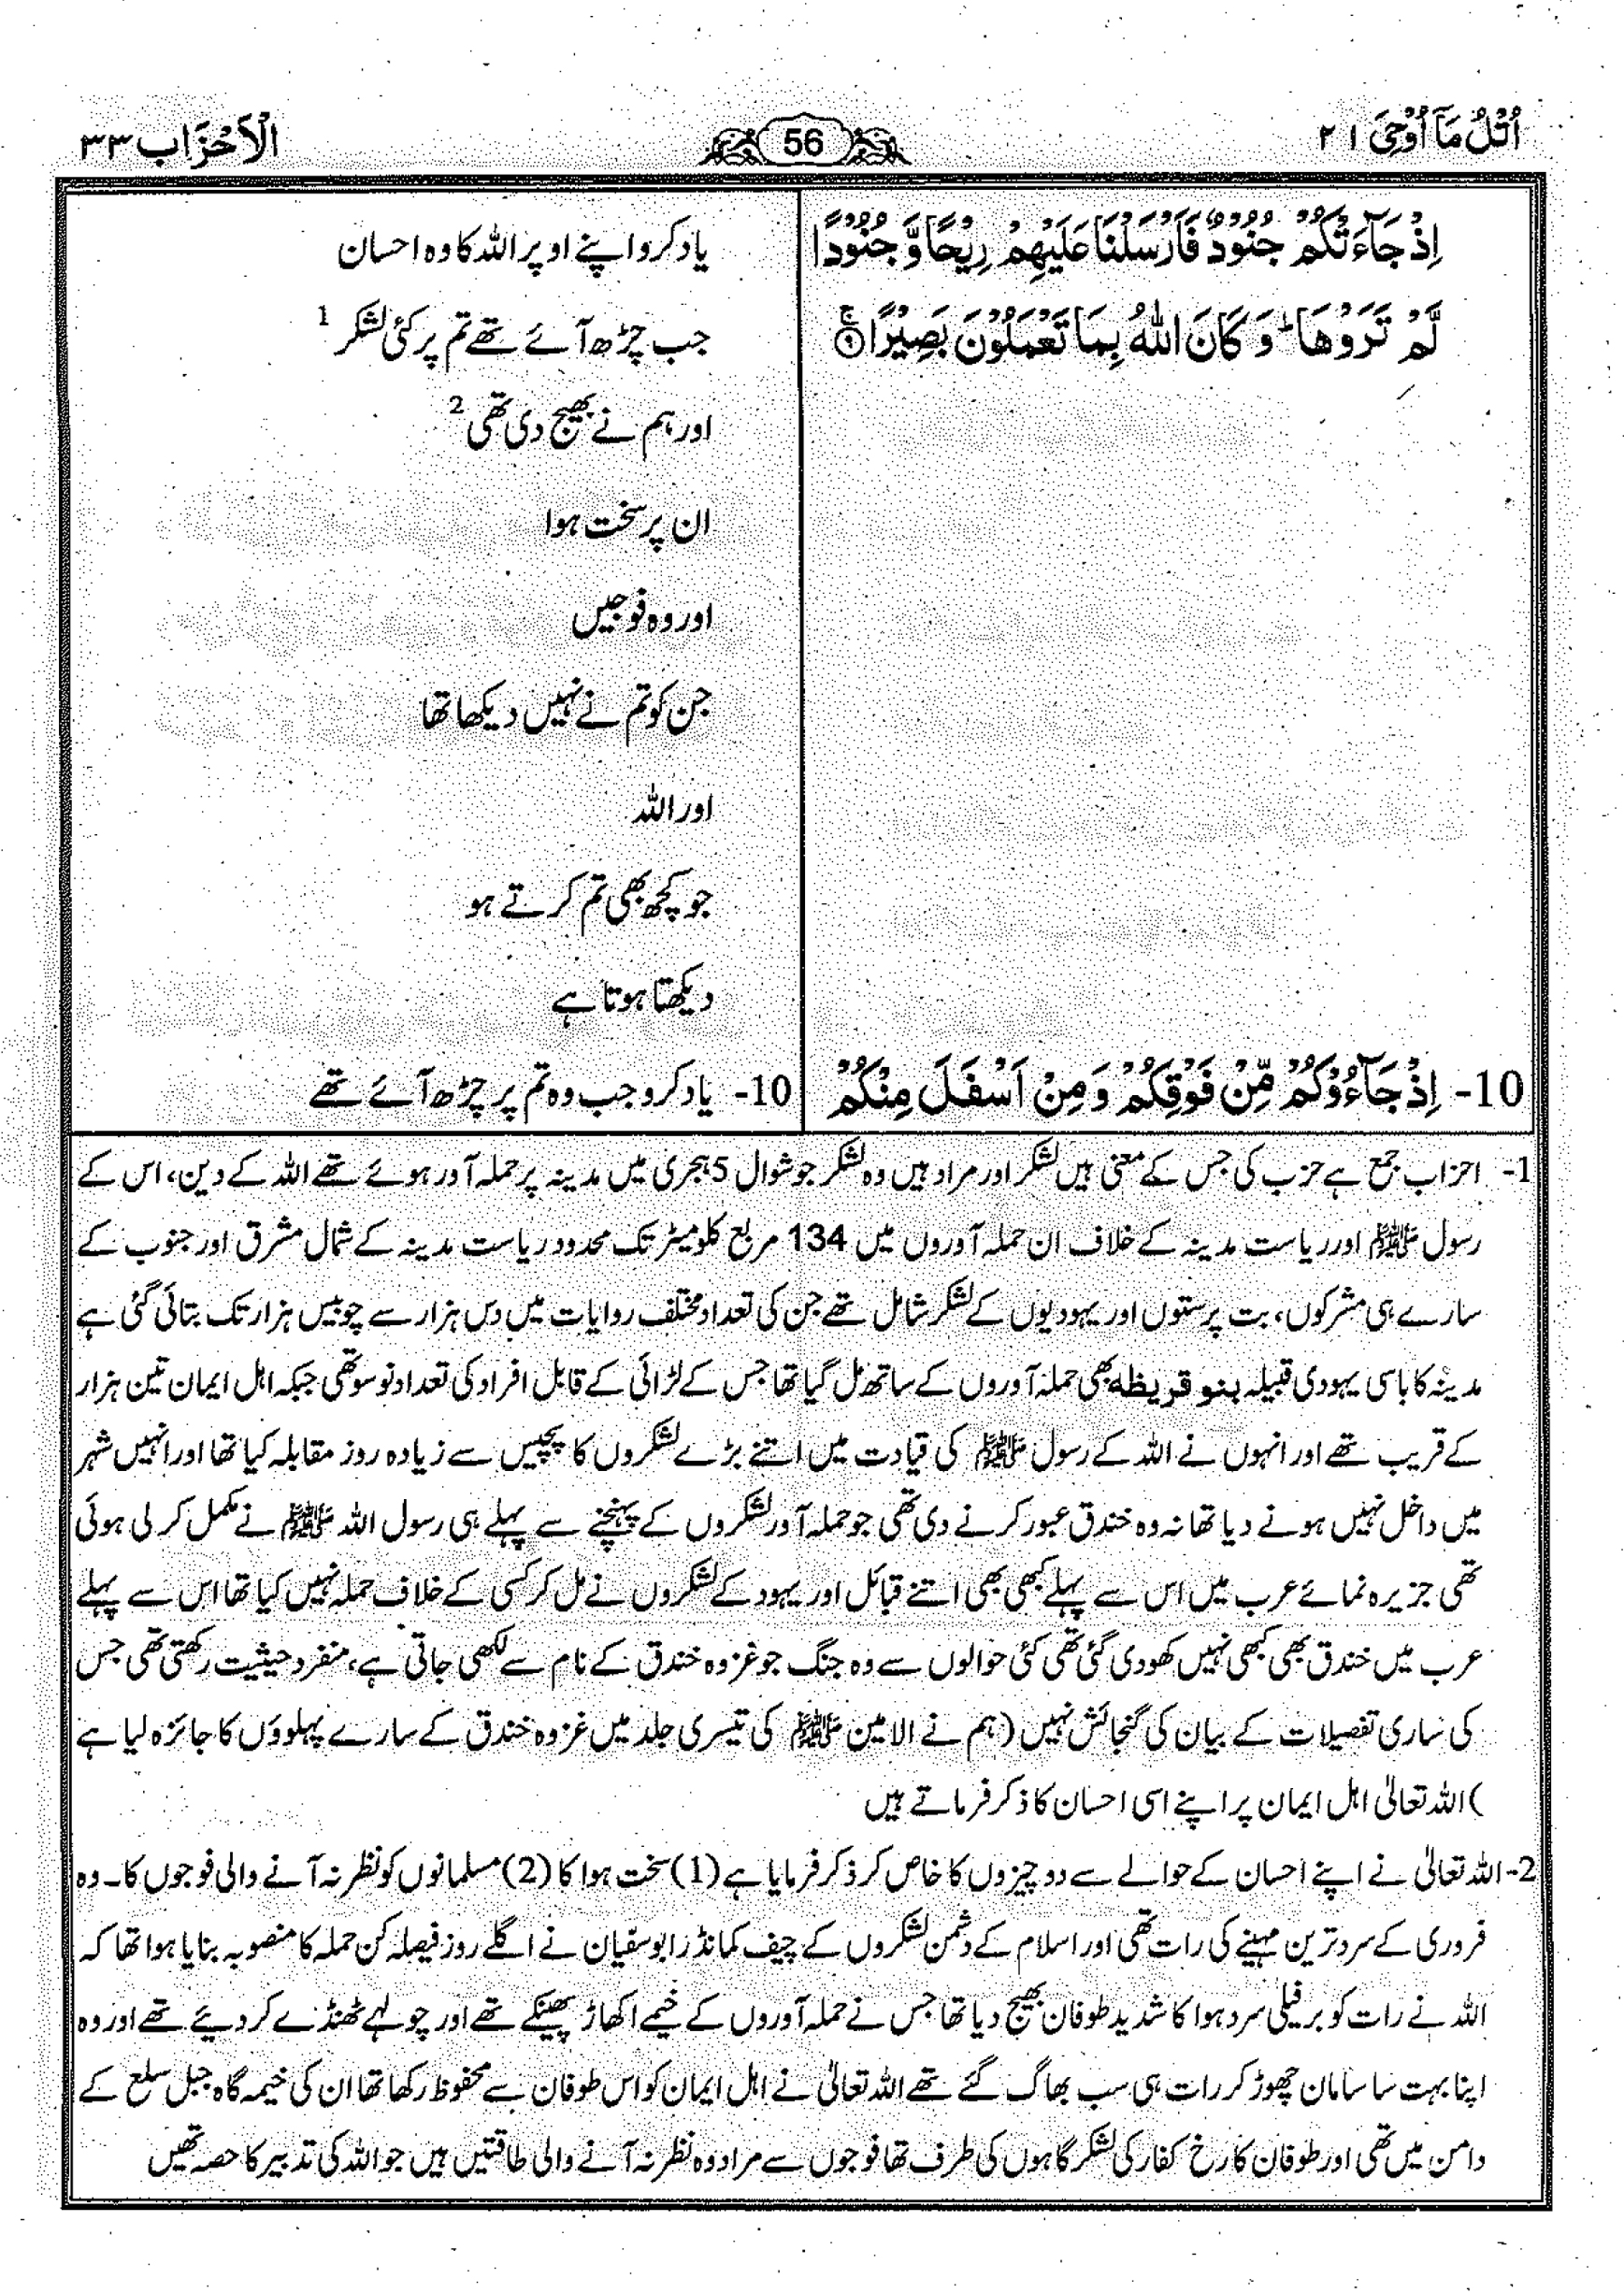 اُتْلُ مَآ اُوْحِیَ ۲۱
56
الْاَحْزَاب ۳۳
اِذْ جَآءَتْكُمْ جُنُوْدٌ فَاَرْسَلْنَا عَلَيْهِمْ رِيْحًا وَّ جُنُوْدًا
لَّمْ تَرَوْهَا ؕ وَ كَانَ اللّٰهُ بِمَا تَعْمَلُوْنَ بَصِيْرًا ۹
10- اِذْ جَآءُوْكُمْ مِّنْ فَوْقِكُمْ وَ مِنْ اَسْفَلَ مِنْكُمْ
یاد کرو اپنے اوپر اللہ کا وہ احسان
جب چڑھ آئے تھے تم پر کئی لشکر 1
اور ہم نے بھیج دی تھی 2
ان پر سخت ہوا
اور وہ فوجیں
جن کو تم نے نہیں دیکھا تھا
اور اللہ
جو کچھ بھی تم کرتے ہو
دیکھتا ہوتا ہے
10- یاد کرو جب وہ تم پر چڑھ آئے تھے
1- احزاب جمع ہے حزب کی جس کے معنی ہیں لشکر اور مراد ہیں وہ لشکر جو شوال 5 ہجری میں مدینہ پر حملہ آور ہوئے تھے اللہ کے دین، اس کے
رسول ﷺ اور ریاست مدینہ کے خلاف ان حملہ آوروں میں 134 مربع کلومیٹر تک محدود ریاست مدینہ کے شمال مشرق اور جنوب کے
سارے ہی مشرکوں، بت پرستوں اور یہودیوں کے لشکر شامل تھے جن کی تعداد مختلف روایات میں دس ہزار سے چوبیس ہزار تک بتائی گئی ہے
مدینہ کا باسی یہودی قبیلہ بنو قریظہ بھی حملہ آوروں کے ساتھ مل گیا تھا جس کے لڑائی کے قابل افراد کی تعداد نو سو تھی جبکہ اہل ایمان تین ہزار
کے قریب تھے اور انہوں نے اللہ کے رسول ﷺ کی قیادت میں اتنے بڑے لشکروں کا پچیس سے زیادہ روز مقابلہ کیا تھا اور انہیں شہر
میں داخل نہیں ہونے دیا تھا نہ وہ خندق عبور کرنے دی تھی جو حملہ آور لشکروں کے پہنچنے سے پہلے ہی رسول اللہ ﷺ نے مکمل کر لی ہوئی
تھی جزیرہ نمائے عرب میں اس سے پہلے کبھی بھی اتنے قبائل اور یہود کے لشکروں نے مل کر کسی کے خلاف حملہ نہیں کیا تھا اس سے پہلے
عرب میں خندق بھی کبھی نہیں کھودی گئی تھی کئی حوالوں سے وہ جنگ جو غزوہ خندق کے نام سے لکھی جاتی ہے، منفرد حیثیت رکھتی تھی جس
کی ساری تفصیلات کے بیان کی گنجائش نہیں (ہم نے الامین ﷺ کی تیسری جلد میں غزوہ خندق کے سارے پہلووٴں کا جائزہ لیا ہے
) اللہ تعالیٰ اہل ایمان پر اپنے اسی احسان کا ذکر فرماتے ہیں
2- اللہ تعالیٰ نے اپنے احسان کے حوالے سے دو چیزوں کا خاص کر ذکر فرمایا ہے (1) سخت ہوا کا (2) مسلمانوں کو نظر نہ آنے والی فوجوں کا۔ وہ
فروری کے سرد ترین مہینے کی رات تھی اور اسلام کے دشمن لشکروں کے چیف کمانڈر ابوسفیان نے اگلے روز فیصلہ کن حملہ کا منصوبہ بنایا ہوا تھا کہ
اللہ نے رات کو برفیلی سرد ہوا کا شدید طوفان بھیج دیا تھا جس نے حملہ آوروں کے خیمے اکھاڑ پھینکے تھے اور چولہے ٹھنڈے کر دیئے تھے اور وہ
اپنا بہت سا سامان چھوڑ کر رات ہی سب بھاگ گئے تھے اللہ تعالیٰ نے اہل ایمان کو اس طوفان سے محفوظ رکھا تھا ان کی خیمہ گاہ جبل سلع کے
دامن میں تھی اور طوفان کا رخ کفار کی لشکر گاہوں کی طرف تھا فوجوں سے مراد وہ نظر نہ آنے والی طاقتیں ہیں جو اللہ کی تدبیر کا حصہ تھیں